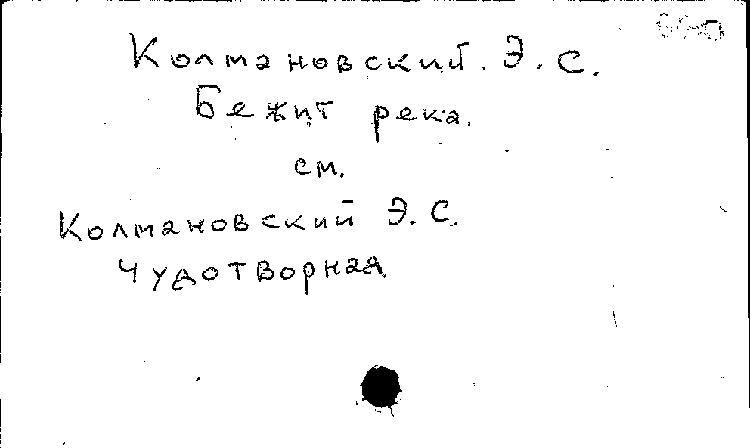 Колмановский. Э. С.
Бежит река.
см.
Колмановский Э. С.
Чудотворная